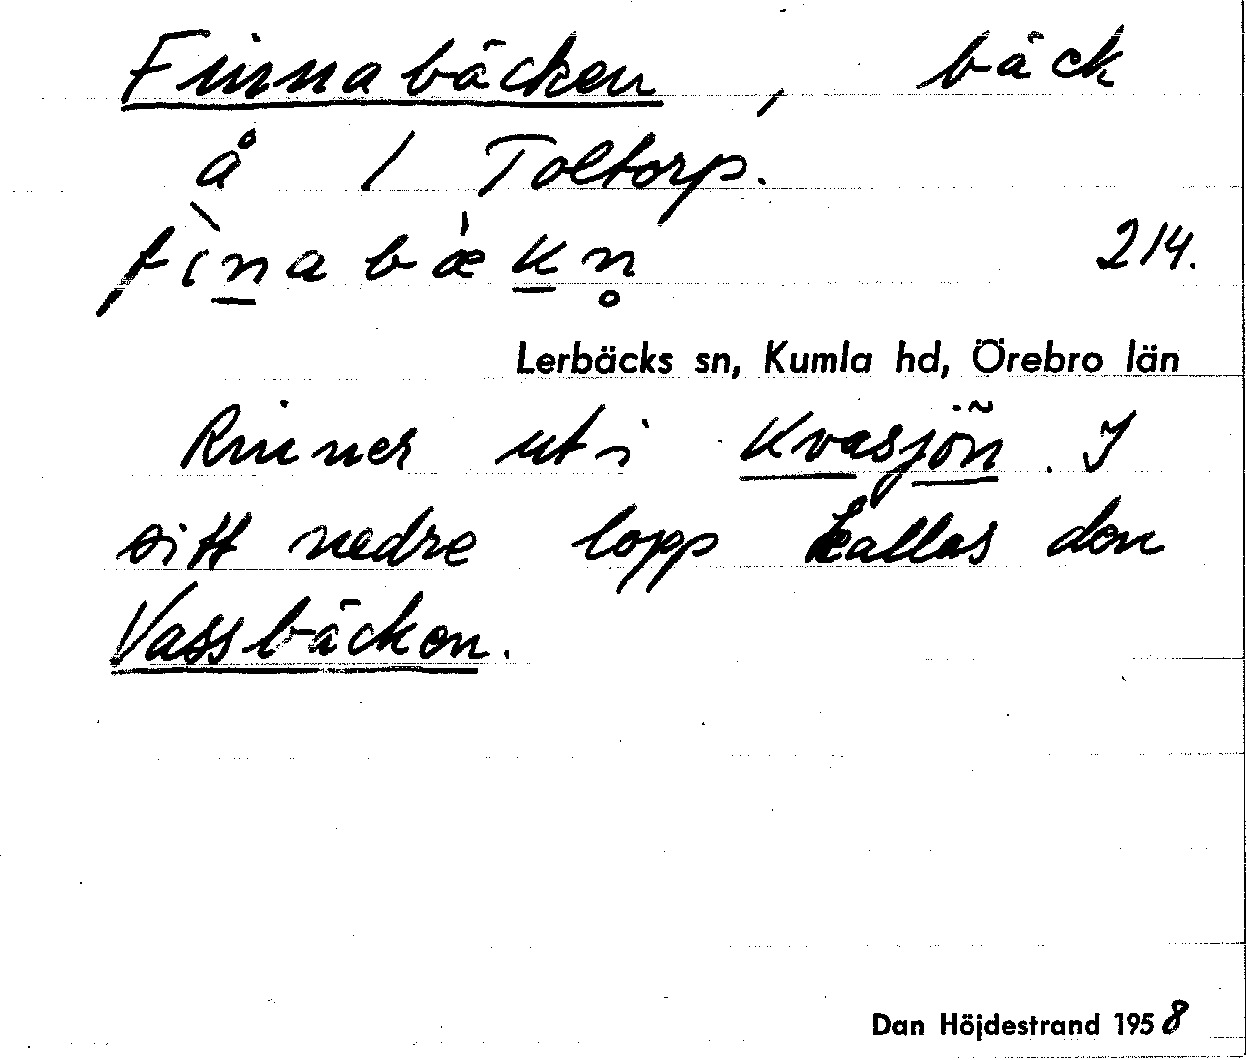 Finnabäcken, bäck
å 1 Toltorp.
fìnabǽkn̥ 214.
Lerbäcks sn, Kumla hd, Örebro län
Rinner ut i Kvasjön. I
sitt nedre lopp kallas den
Vassbäcken.
Dan Höjdestrand 1958